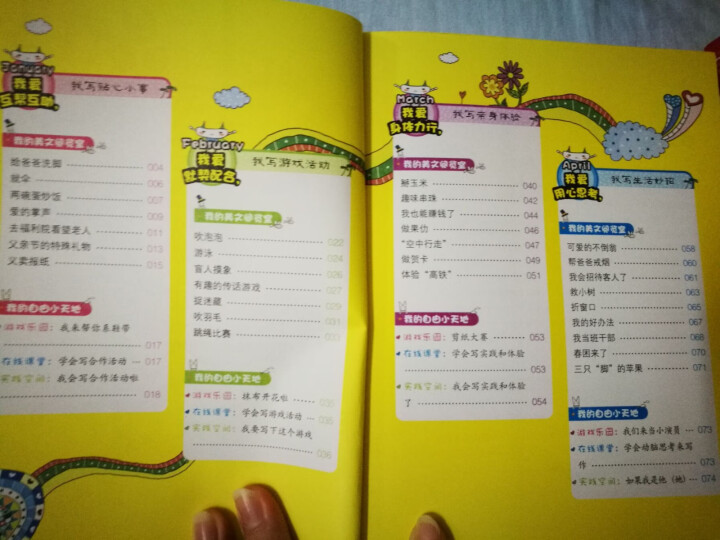 January
我爱
互帮互助,
我写贴心小事
我的美文欣赏室
给爸爸洗脚 004
就伞 006
两碗蛋炒饭 007
爱的掌声 009
去福利院看望老人 011
父亲节的特殊礼物 013
父卖报纸 015
我的自由小天地
游戏乐园：我来帮你系鞋带
017
在线课堂：学会写合作活动 017
实践空间：我会写合作活动啦
018
February
我爱
默契配合,
我写游戏活动
我的美文欣赏室
吹泡泡 022
游泳 024
盲人摸象 026
有趣的传话游戏 027
捉迷藏 029
吹羽毛
跳绳比赛
我的自由小天地
游戏乐园：抹布开花啦
在线课堂：学会写游戏活动
实践空间：我要写下这个游戏
036
March
我爱
身体力行,
我写亲身体验
我的美文欣赏室
掰玉米 040
趣味串珠 042
我也能赚钱了 044
做果仂 046
“空中行走” 047
做贺卡 049
体验“高铁” 051
我的自由小天地
游戏乐园：剪纸大赛 053
在线课堂：学会写实践和体验
053
实践空间：我会写实践和体验
了 054
April
我爱
用心思考,
我写生活妙招
我的美文欣赏室
可爱的不倒翁 058
帮爸爸戒烟 060
我会招待客人了 061
救小树 063
折窗口 065
我的好办法 067
我当班干部 068
春困来了 070
三只“脚”的苹果 071
我的自由小天地
游戏乐园：我们来当小演员 073
在线课堂：学会动脑思考来写
作 073
实践空间：如果我是他（她） 074